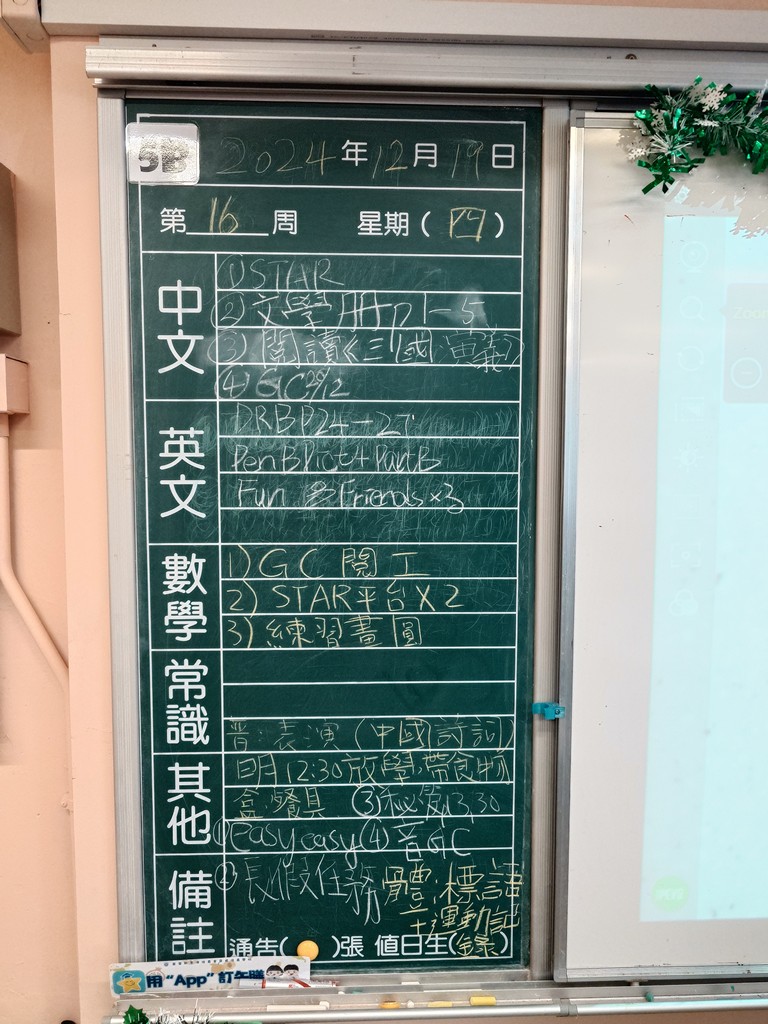 5B 2024年12月19日
第16周 星期(四)
中文
①STAR
②文學冊p1-5
③閱讀《三國演義》
④GC20/12
英文
DRBP24-27
PenBPict+PartB
Fun & Friends×3
數學
1) GC 閱工
2) STAR平台X2
3) 練習畫圓
常識
普:表演(中國詩詞)
其他
明12:30放學帶食物
盒餐具 ③
①easy easy ④音GC
備註
②長假任務 體:標語
+運動記
錄
通告( )張 值日生( )
用“App”訂午膳
Zoom